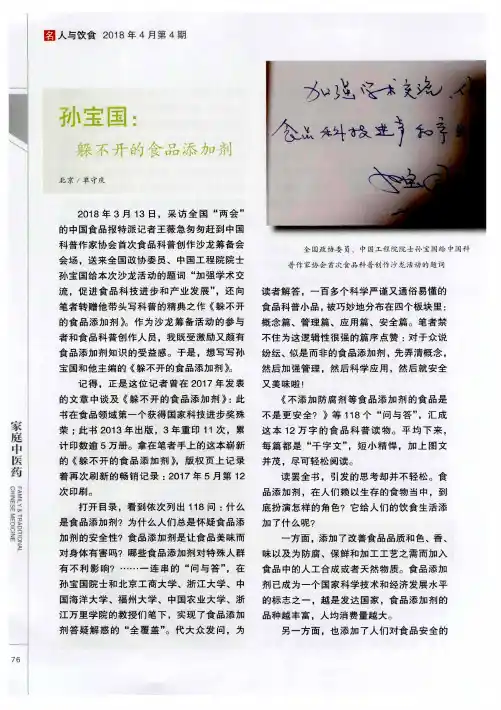 名 人与饮食 2018 年 4 月第 4 期
孙宝国：
躲不开的食品添加剂
北京/单守庆
2018 年 3 月 13 日，采访全国“两会”
的中国食品报特派记者王薇急匆匆赶到中国
科普作家协会首次食品科普创作沙龙筹备会
会场，送来全国政协委员、中国工程院院士
孙宝国给本次沙龙活动的题词“加强学术交
流，促进食品科技进步和产业发展”，还向
笔者转赠他带头写科普的精典之作《躲不开
的食品添加剂》。作为沙龙筹备活动的参与
者和食品科普创作人员，我既受激励又颇有
食品添加剂知识的受益感。于是，想写写孙
宝国和他主编的《躲不开的食品添加剂》。
记得，正是这位记者曾在 2017 年发表
的文章中谈及《躲不开的食品添加剂》：此
书在食品领域第一个获得国家科技进步奖殊
荣；此书 2013 年出版，3 年重印 11 次，累
计印数逾 5 万册。拿在笔者手上的这本崭新
的《躲不开的食品添加剂》，版权页上记录
着再次刷新的畅销记录：2017 年 5 月第 12
次印刷。
打开目录，看到依次列出 118 问：什么
是食品添加剂？为什么人们总是怀疑食品添
加剂的安全性？食品添加剂是让食品美味而
对身体有害吗？哪些食品添加剂对特殊人群
有不利影响？……一连串的“问与答”，在
孙宝国院士和北京工商大学、浙江大学、中
国海洋大学、福州大学、中国农业大学、浙
江万里学院的教授们笔下，实现了食品添加
剂答疑解惑的“全覆盖”。代大众发问，为
加强学术交流，
食品科技进步和产
全国政协委员、中国工程院院士孙宝国给中国科
普作家协会首次食品科普创作沙龙活动的题词
读者解答，一百多个科学严谨又通俗易懂的
食品科普小品，被巧妙地分布在四个板块里：
概念篇、管理篇、应用篇、安全篇。笔者禁
不住为这逻辑性很强的篇序点赞：对于众说
纷纭、似是而非的食品添加剂，先弄清概念，
然后加强管理，然后科学应用，然后就安全
又美味啦！
《不添加防腐剂等食品添加剂的食品是
不是更安全？》等 118 个“问与答”，汇成
这本 12 万字的食品科普读物。平均下来，
每篇都是“千字文”，短小精悍，加上图文
并茂，尽可轻松阅读。
读罢全书，引发的思考却并不轻松。食
品添加剂，在人们赖以生存的食物当中，到
底扮演怎样的角色？它给人们的饮食生活添
加了什么呢？
一方面，添加了改善食品品质和色、香、
味以及为防腐、保鲜和加工工艺之需而加入
食品中的人工合成或者天然物质。食品添加
剂已成为一个国家科学技术和经济发展水平
的标志之一，越是发达国家，食品添加剂的
品种越丰富，人均消费量越大。
另一方面，也添加了人们对食品安全的
家庭中医药
FAMILY & TRADITIONAL
CHINESE MEDICINE
76